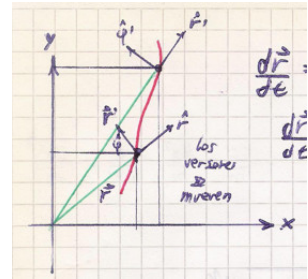 y
φ̂'
r̂'
r⃗'
φ̂
r̂
r⃗
x
los
versores
se
mueven
dr⃗
dt
=
dr⃗
dt